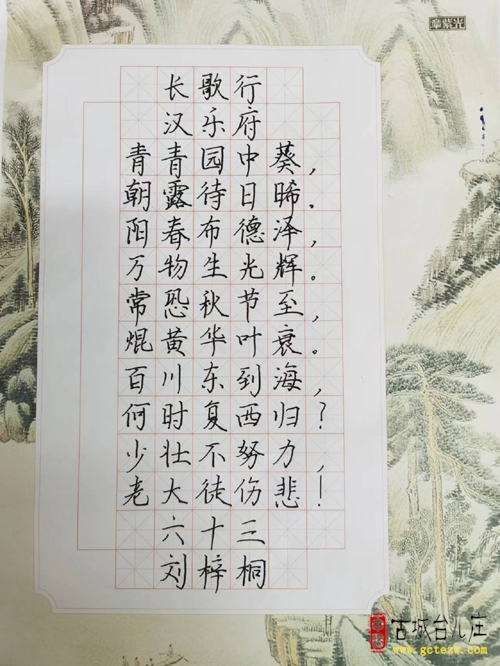 长歌行
汉乐府
青青园中葵，
朝露待日晞。
阳春布德泽，
万物生光辉。
常恐秋节至，
焜黄华叶衰。
百川东到海，
何时复西归？
少壮不努力，
老大徒伤悲！
六十三
刘梓桐
古城台儿庄
www.gctezw.com